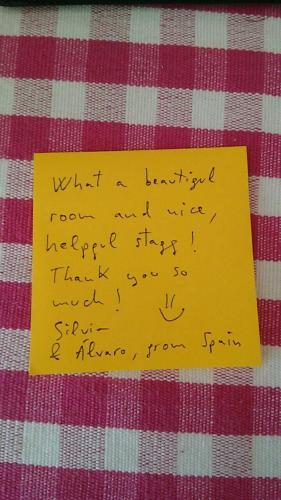 What a beautiful
room and nice,
helpful staff!
Thank you so
much!
Silvia
& Álvaro, from Spain